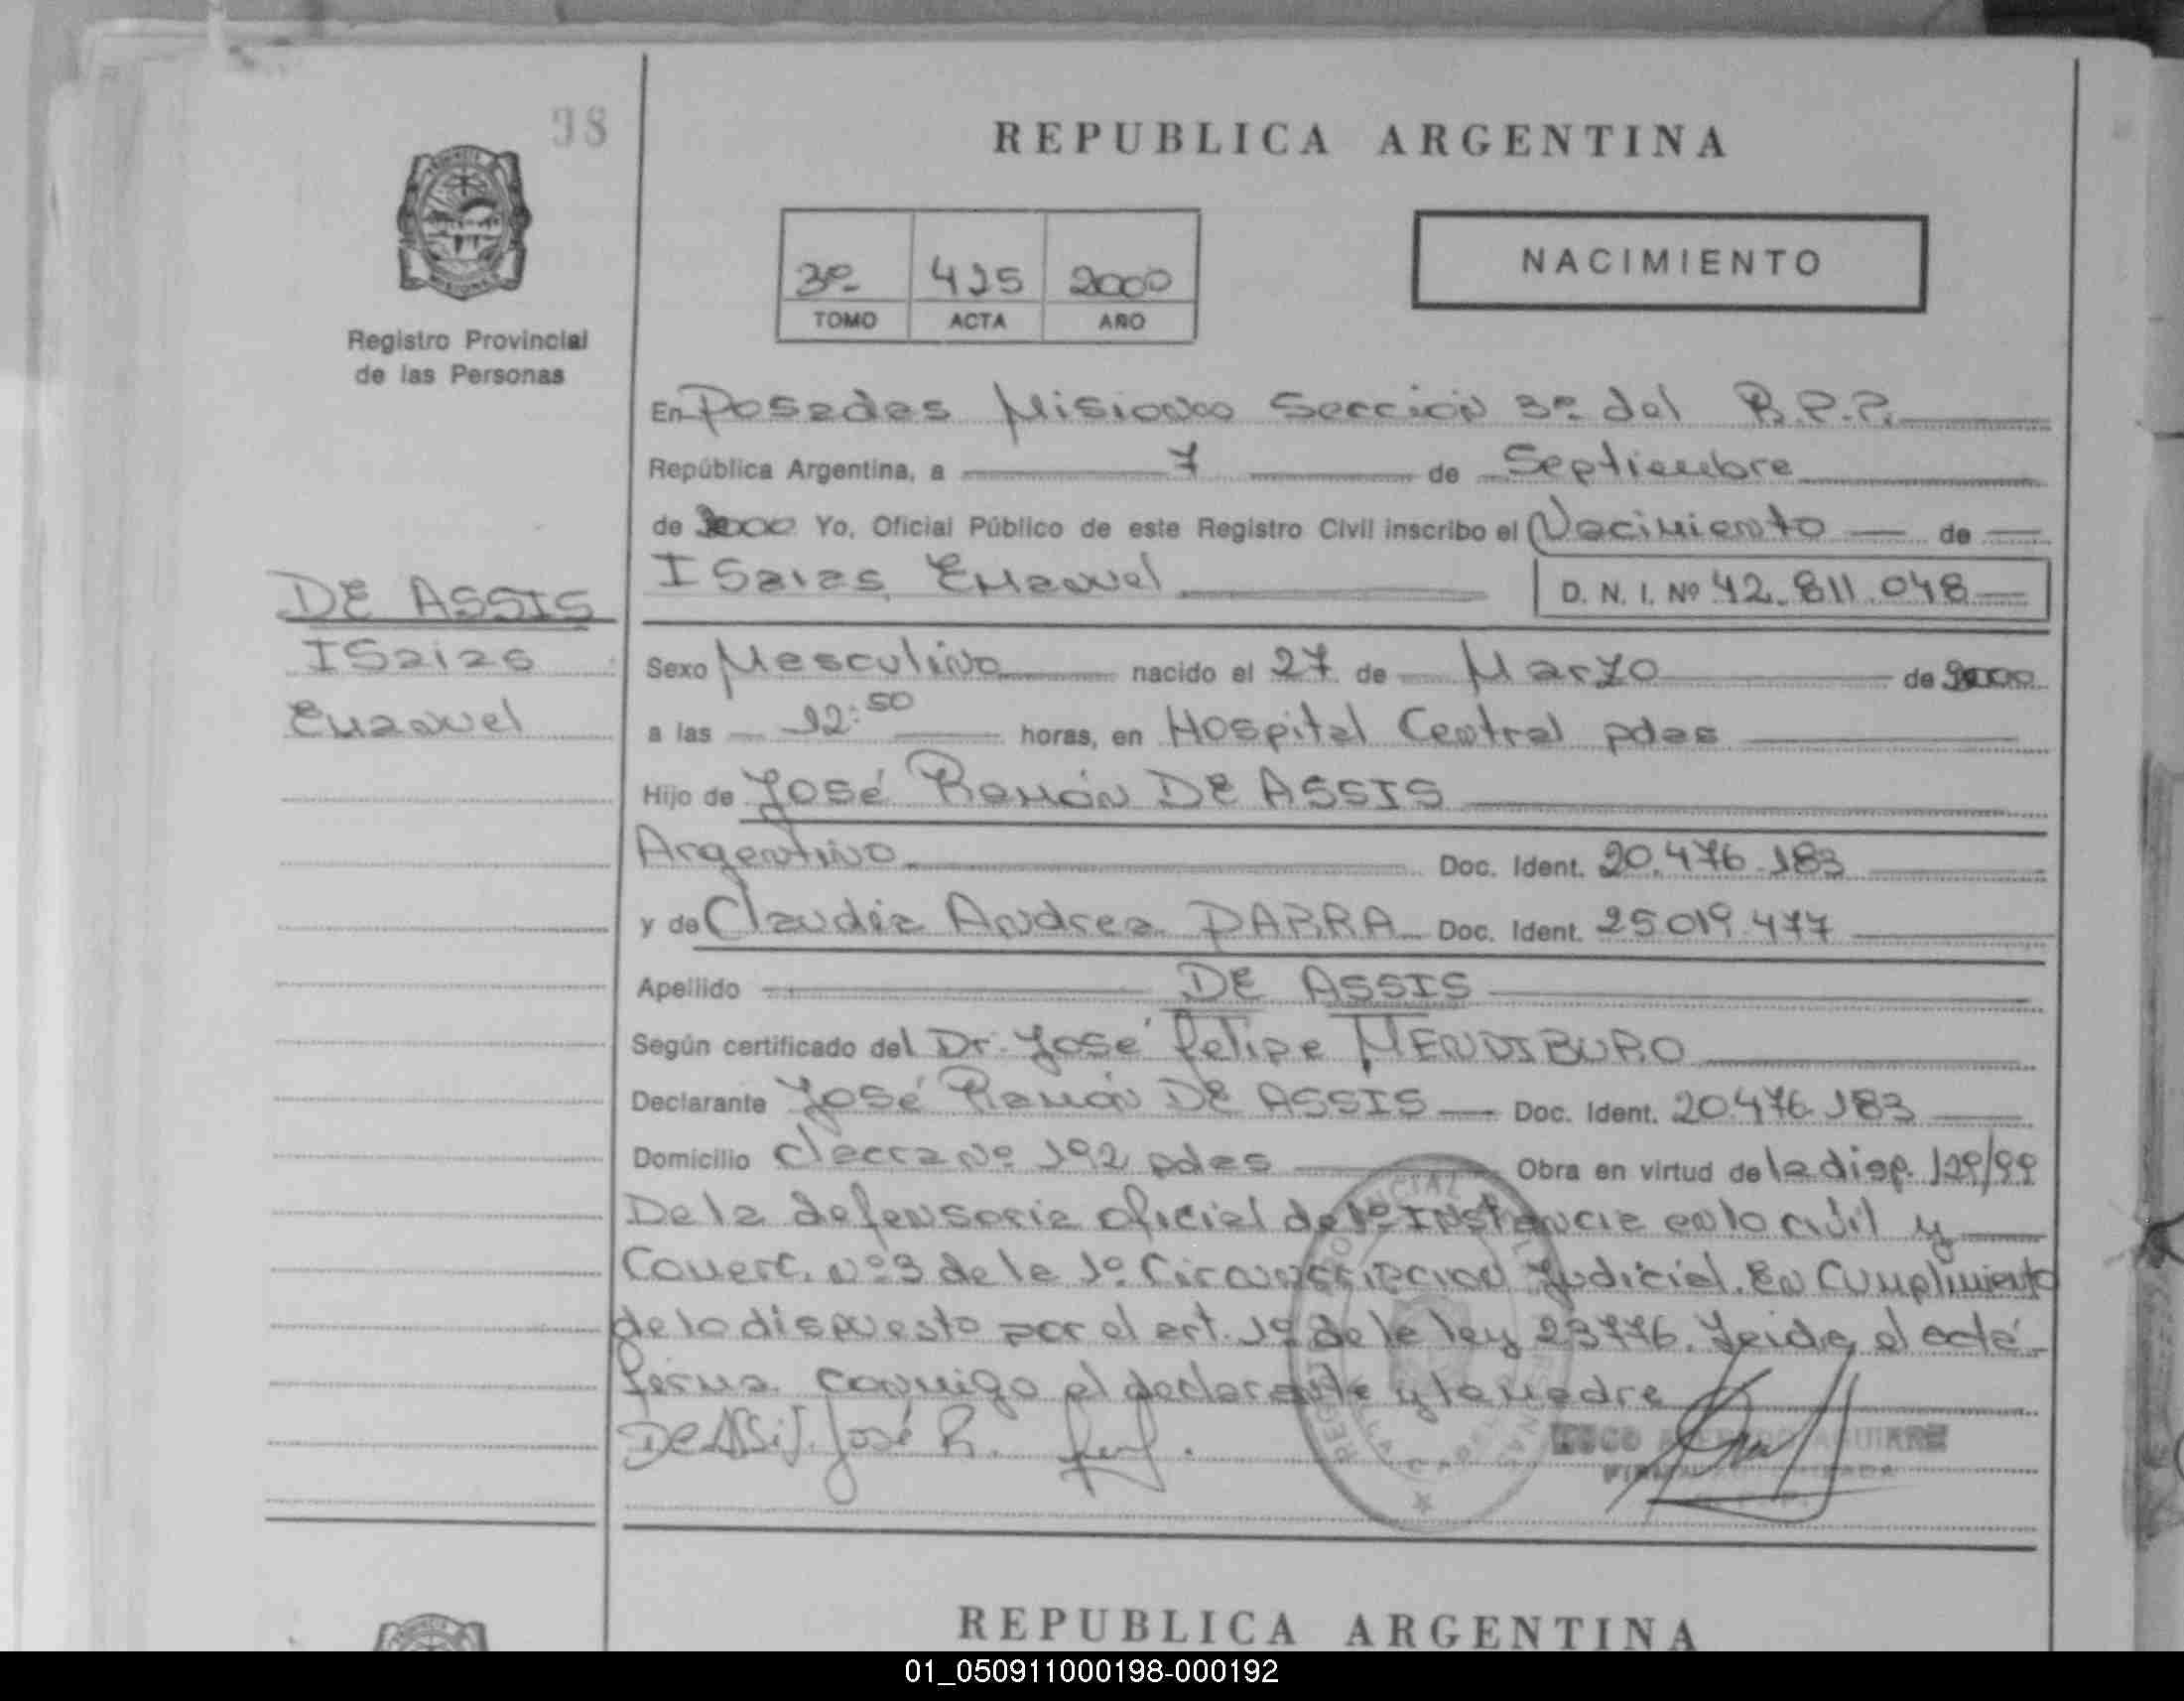 98
REPUBLICA ARGENTINA
3º 425 2000
TOMO ACTA AÑO
NACIMIENTO
Registro Provincial
de las Personas
En Posadas Misiones Sección 3º del R.P.P.
República Argentina, a 7 de Septiembre
de 2000 Yo, Oficial Público de este Registro Civil inscribo el Nacimiento de
Isaias Emanuel D. N. I. Nº 42.811.048
DE ASSIS
Isaias
Emanuel
Sexo Masculino nacido el 27 de Marzo de 2000
a las 12:50 horas, en Hospital Central pdas
Hijo de José Ramón DE ASSIS
Argentino Doc. Ident. 20.476.183
y de Claudia Andrea PARRA Doc. Ident. 25019.477
Apellido DE ASSIS
Según certificado del Dr. José Felipe MENDIBURO
Declarante José Ramón DE ASSIS Doc. Ident. 20476.183
Domicilio chacra Nº 192 pdas Obra en virtud de la disp. 129/99
De la defensoria oficial de 1º Instancia en lo civil y
Comerc. nº 3 de la 1º Circunscripcion Judicial. En Cumplimiento
de lo dispuesto por el art. 1º de la ley 23776. Leida el acta
firma conmigo el declarante y la madre
De Assis José R.
AGUIRRE
REPUBLICA ARGENTINA
01_050911000198-000192